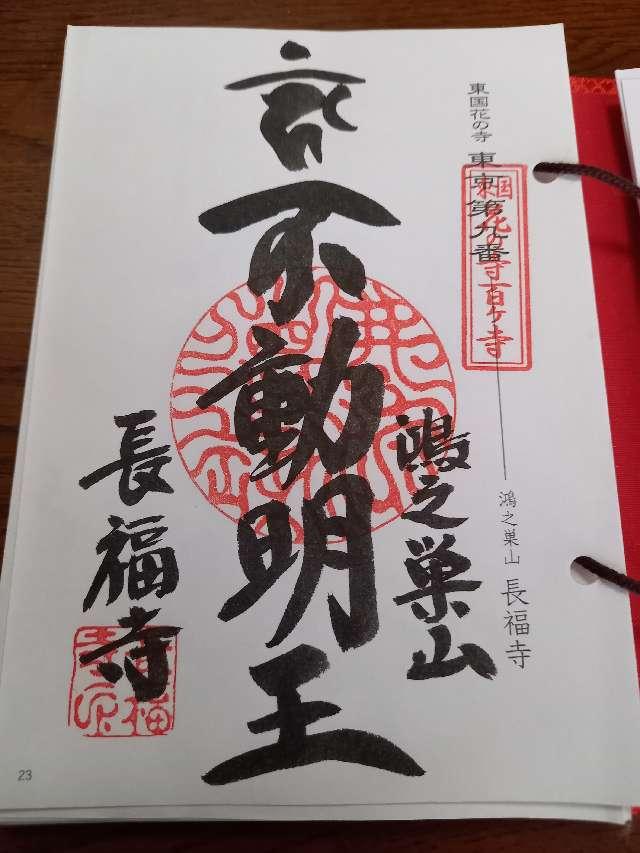 東国花の寺 東京第九番
国花の寺百ヶ寺
鴻之巣山 長福寺
鴻之巣山
不動明王
長福寺
23